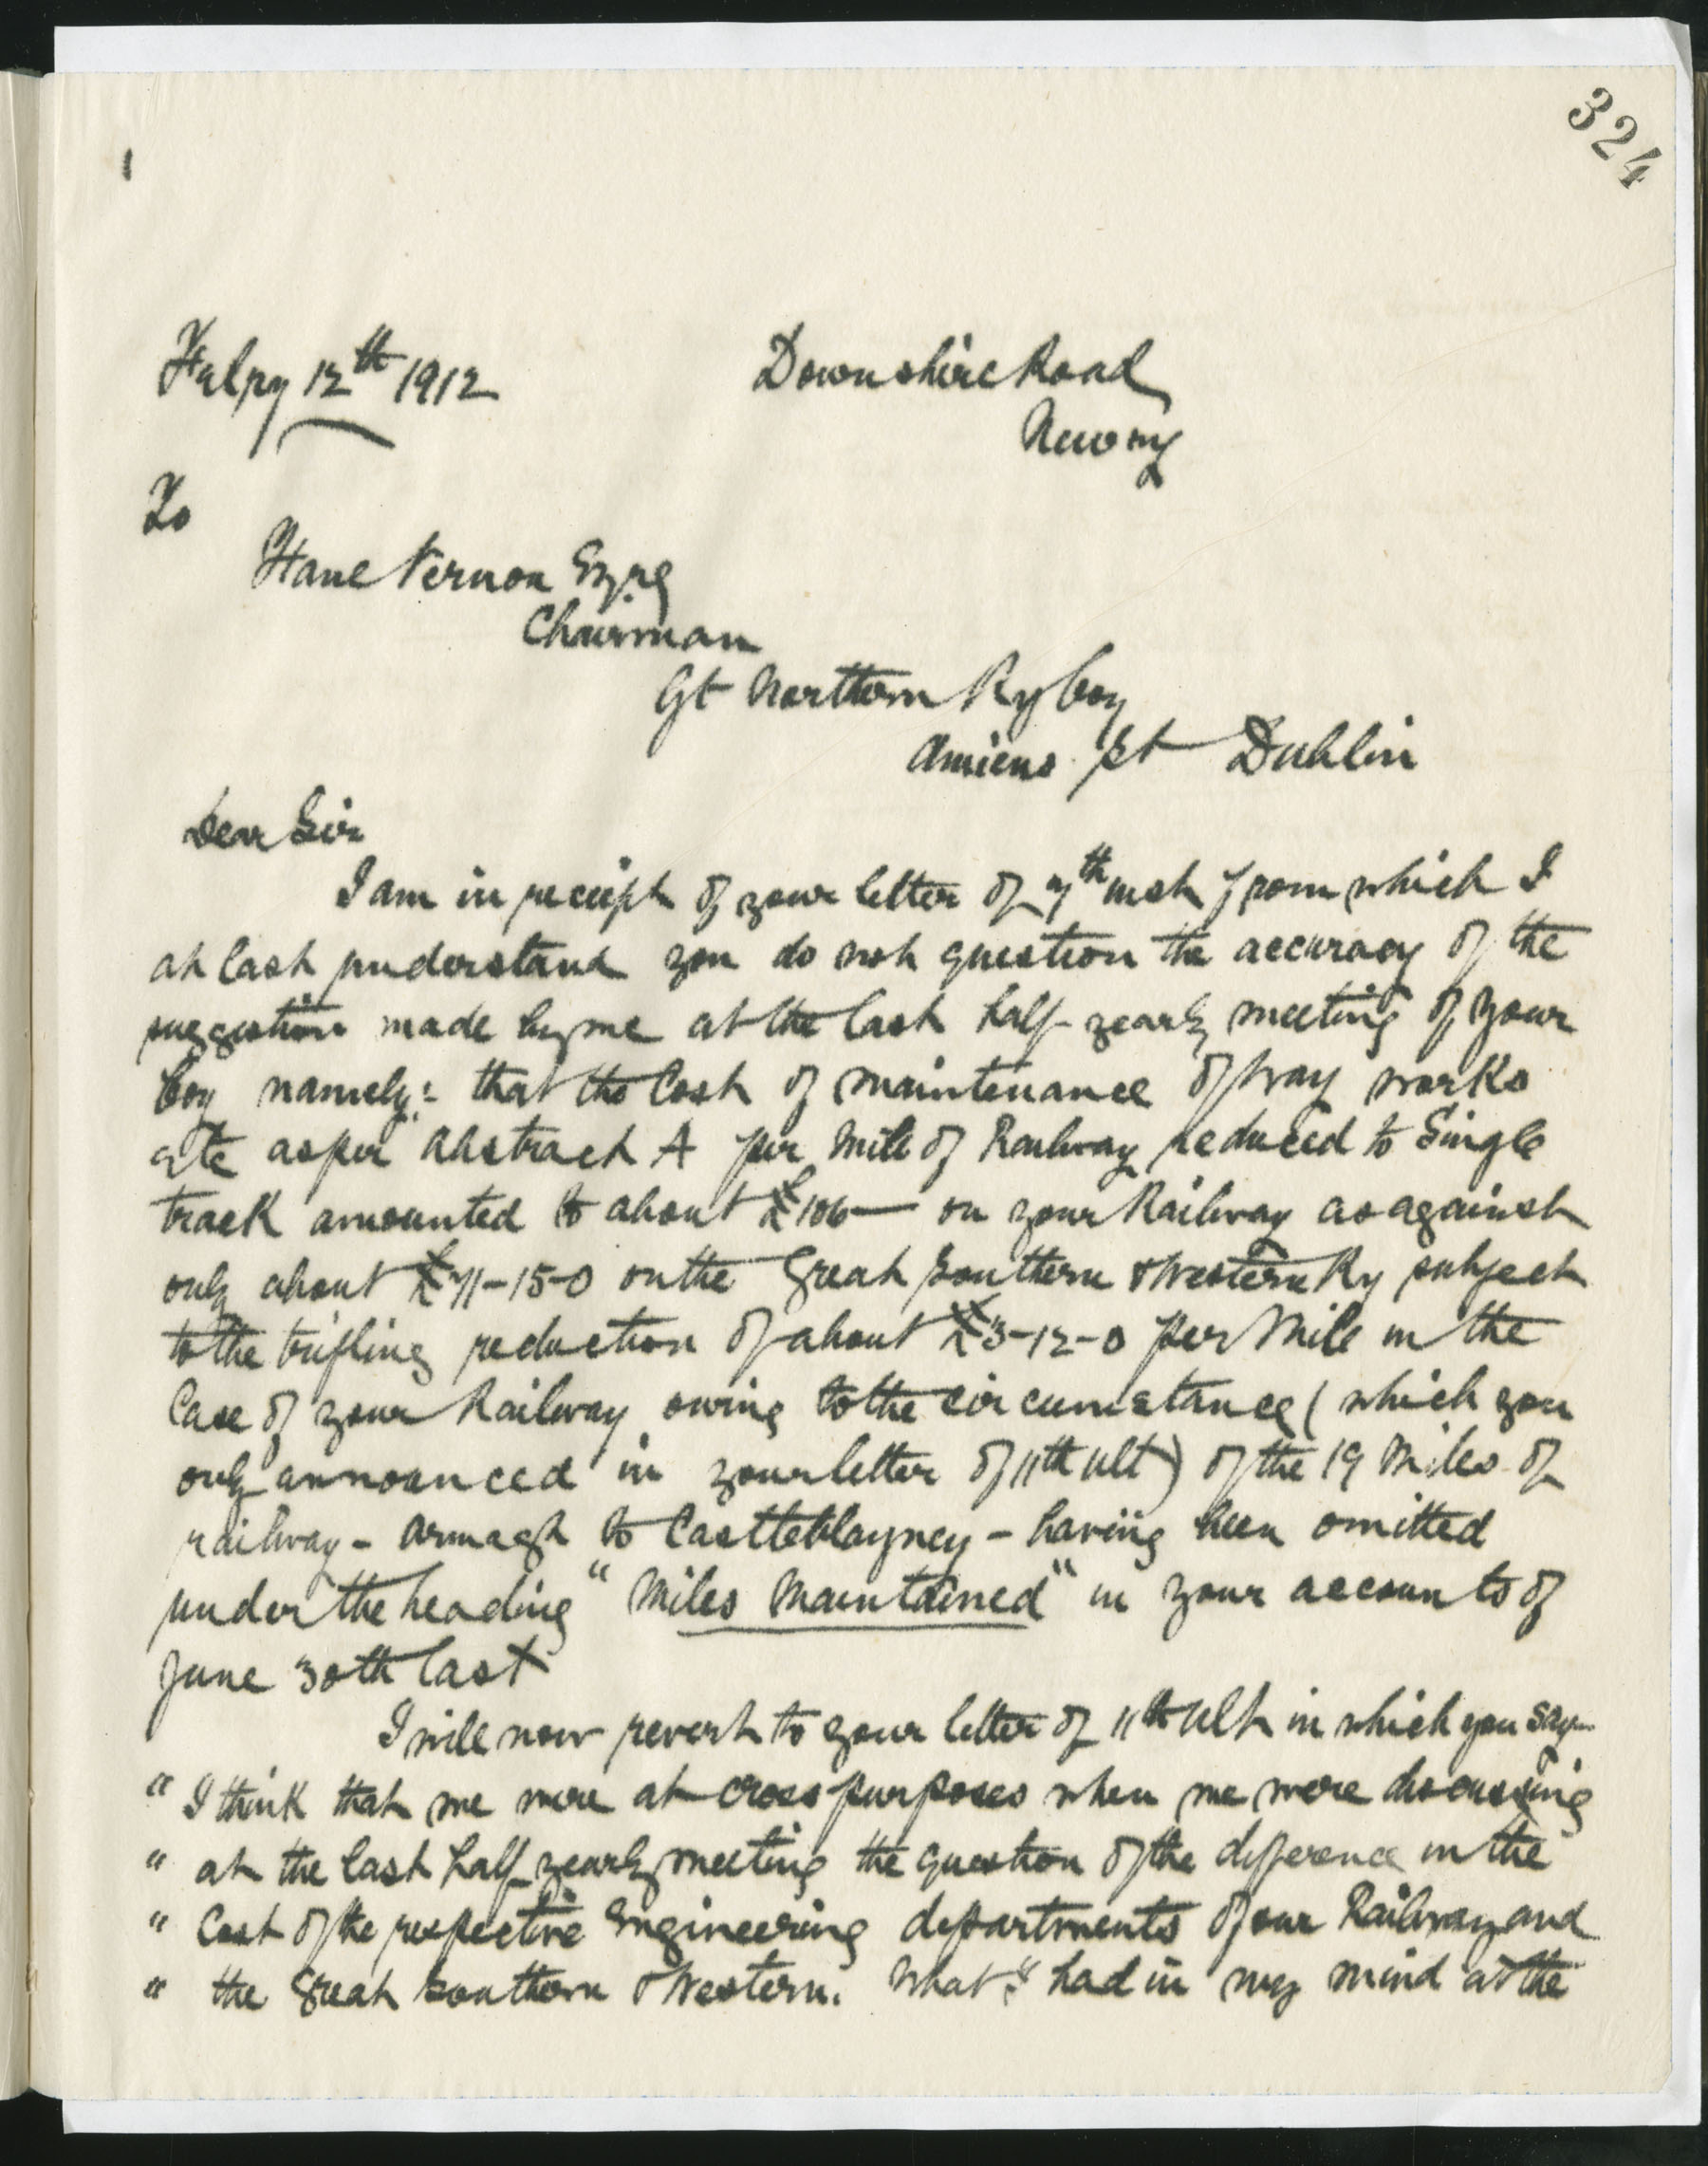 324
1
Febry 12th 1912
Downshire Road
Newry
To
Fane Vernon Esqre
Chairman
Gt Northern Ry Coy
Amiens St Dublin
Dear Sir
I am in receipt of your letter of 7th inst from which I
at last understand you do not question the accuracy of the
suggestion made by me at the last half-yearly meeting of your
Coy namely: that the Cost of maintenance of Way works
etc as per Abstract A per Mile of Railway reduced to Single
track amounted to about £106— on your Railway as against
only about £71-15-0 on the Great Southern & Western Ry subject
to the trifling reduction of about £3-12-0 per Mile in the
Case of your Railway owing to the circumstance (which you
only announced in your letter of 11th ult) of the 19 Miles of
railway - Armagh to Castleblayney - having been omitted
under the heading "Miles Maintained" in your accounts of
June 30th last
I will now revert to your letter of 11th Ult in which you say—
" I think that we were at cross purposes when we were discussing
" at the last half-yearly meeting the question of the difference in the
" Cost of the respective Engineering departments of our Railway and
" the Great Southern & Western. What I had in my mind at the